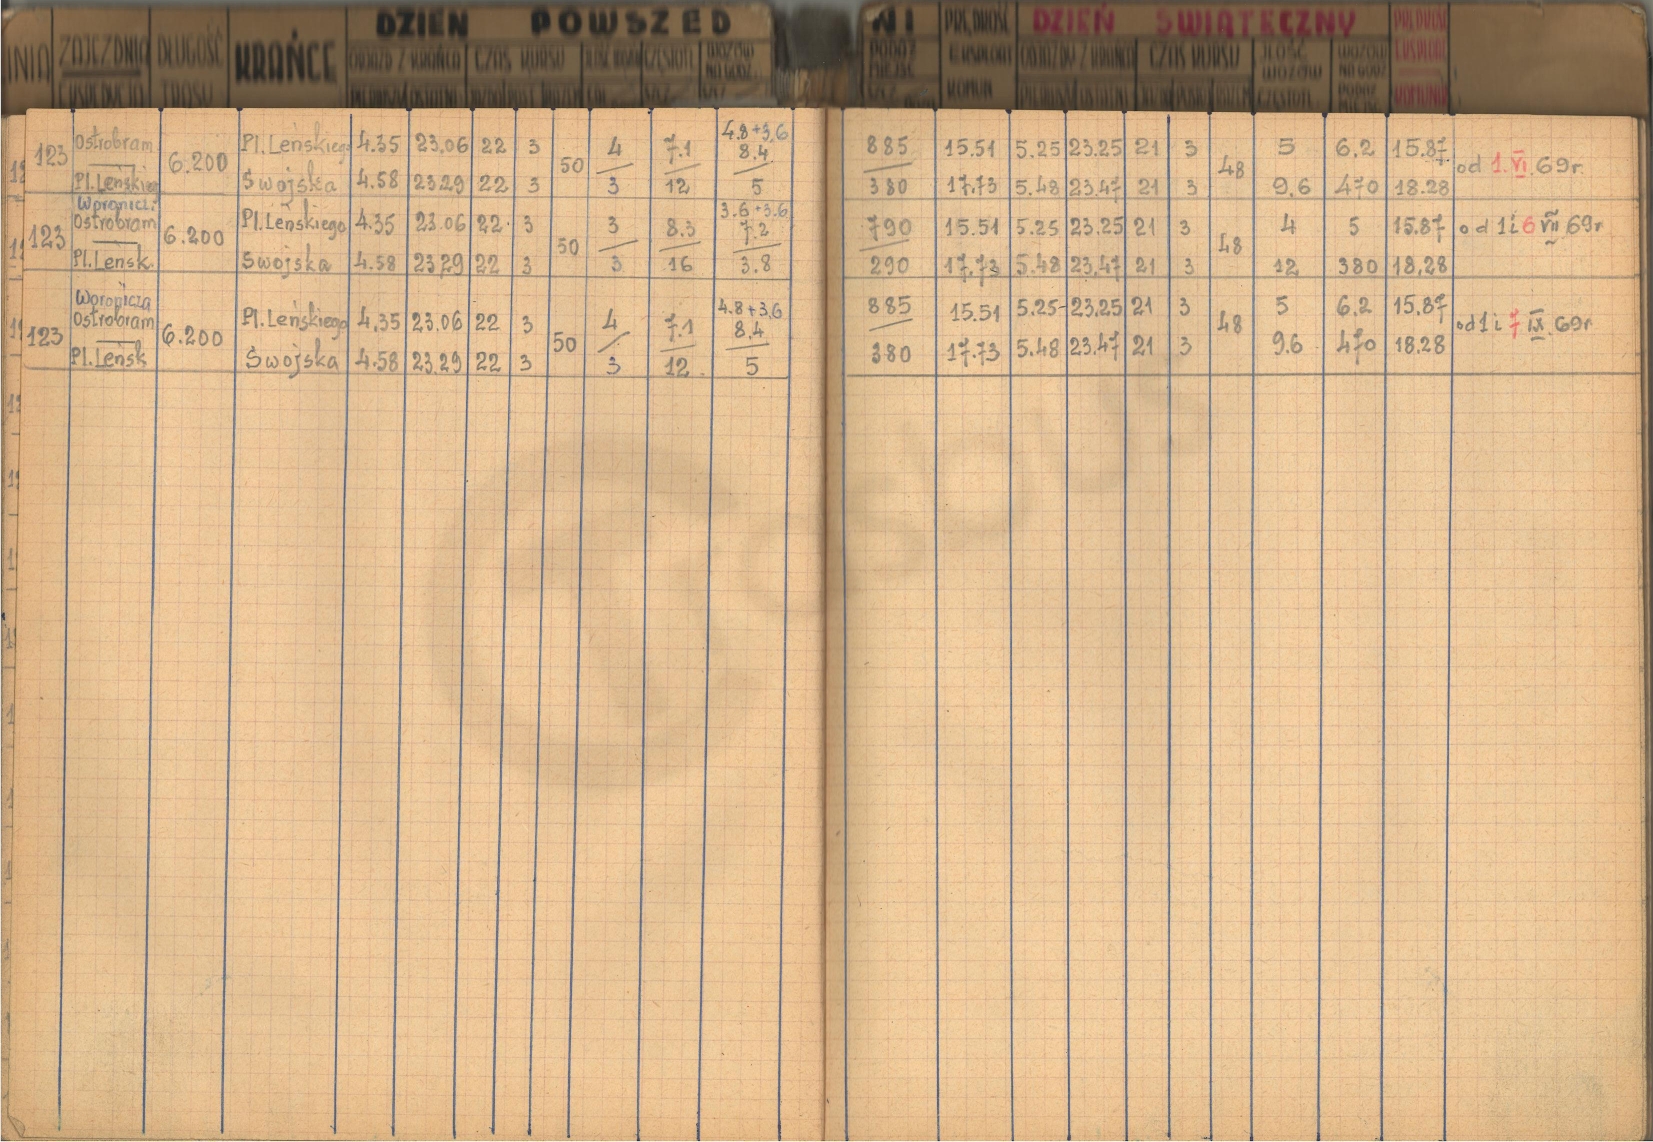 DZIEŃ POWSZEDNI DZIEŃ ŚWIĄTECZNY
ZAJEZDNIA DŁUGOŚĆ TRASY KRAŃCE ODJAZD Z KRAŃCA CZAS KURSU
ODJAZDY Z KRAŃCA CZAS KURSU ILOŚĆ WOZÓW
123 Ostrobram. Pl.Leńskiego 6.200 Pl.Leńskiego 4.35 23.06 22 3 50 4 7.1 4.8+3.6 8.4 885 15.51 5.25 23.25 21 3 48 5 6.2 15.87 od 1.VI.69r.
Swojska 4.58 23.29 22 3 3 12 5 380 17.73 5.48 23.47 21 3 9.6 470 18.28
123 Woronicz: Ostrobram Pl.Leńsk. 6.200 Pl.Leńskiego 4.35 23.06 22 3 50 3 8.3 3.6+3.6 7.2 790 15.51 5.25 23.25 21 3 48 4 5 15.87 od 1i6 VII 69r
Swojska 4.58 23.29 22 3 3 16 3.8 290 17.73 5.48 23.47 21 3 12 380 18.28
123 Woronicza Ostrobram Pl.Leńsk 6.200 Pl.Leńskiego 4.35 23.06 22 3 50 4 7.1 4.8+3.6 8.4 885 15.51 5.25 23.25 21 3 48 5 6.2 15.87 od 1 i 7 IX.69r
Swojska 4.58 23.29 22 3 3 12 5 380 17.73 5.48 23.47 21 3 9.6 470 18.28